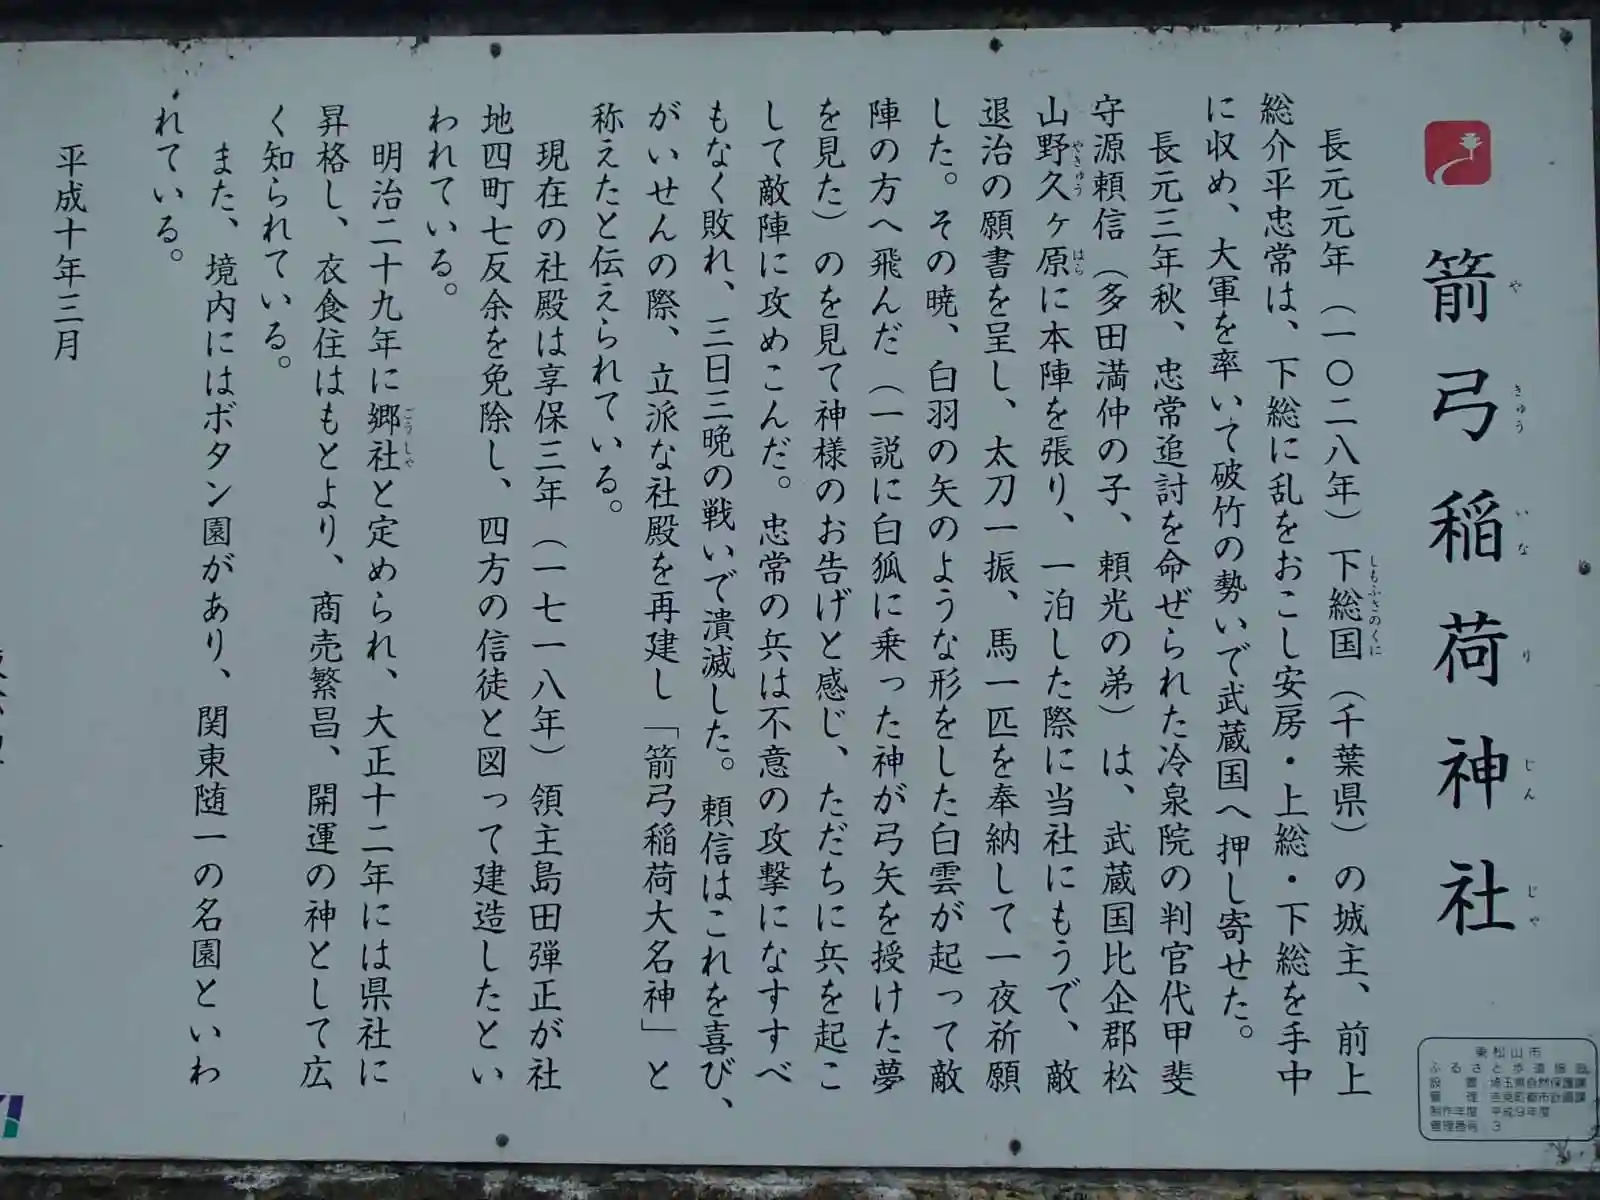 箭弓稲荷神社
やきゅういなりじんじゃ
長元元年（一〇二八年）下総国（千葉県）の城主、前上
しもふさのくに
総介平忠常は、下総に乱をおこし安房・上総・下総を手中
に収め、大軍を率いて破竹の勢いで武蔵国へ押し寄せた。
長元三年秋、忠常追討を命ぜられた冷泉院の判官代甲斐
守源頼信（多田満仲の子、頼光の弟）は、武蔵国比企郡松
山野久ヶ原に本陣を張り、一泊した際に当社にもうで、敵
やきゅう はら
退治の願書を呈し、太刀一振、馬一匹を奉納して一夜祈願
した。その暁、白羽の矢のような形をした白雲が起って敵
陣の方へ飛んだ（一説に白狐に乗った神が弓矢を授けた夢
を見た）のを見て神様のお告げと感じ、ただちに兵を起こ
して敵陣に攻めこんだ。忠常の兵は不意の攻撃になすすべ
もなく敗れ、三日三晩の戦いで潰滅した。頼信はこれを喜び、
がいせんの際、立派な社殿を再建し「箭弓稲荷大名神」と
称えたと伝えられている。
現在の社殿は享保三年（一七一八年）領主島田弾正が社
地四町七反余を免除し、四方の信徒と図って建造したとい
われている。
明治二十九年に郷社と定められ、大正十二年には県社に
ごうしゃ
昇格し、衣食住はもとより、商売繁昌、開運の神として広
く知られている。
また、境内にはボタン園があり、関東随一の名園といわ
れている。
平成十年三月
東松山市
設置 埼玉県自然保護課
制作年度 平成9年度
管理番号 3